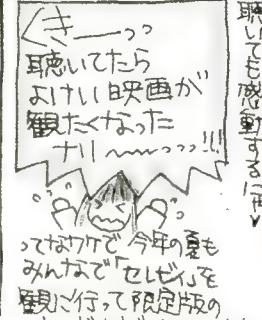 くきーーっっ
聴いてたら
よけい映画が
観たくなった
ナリ〜〜〜っっっ!!!
ってなワケで今年の夏も
みんなで「セレゼィ」を
観に行って限定版の
聴いても感動するにゃ